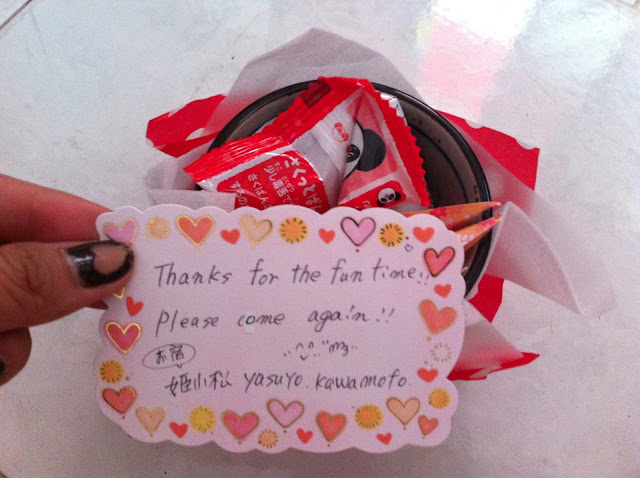 さくっとぱ
さくぱん
Thanks for the fun time!!
Please come again!!
お宿
姫小松 Yasuyo. Kawamoto.